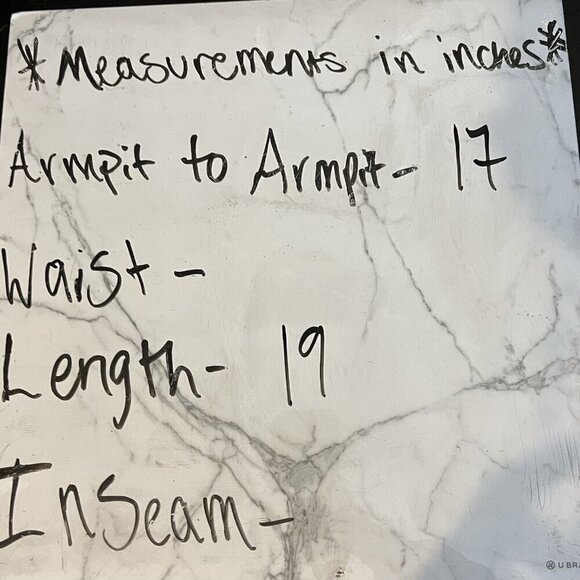 *Measurements in inches*
Armpit to Armpit- 17
Waist -
Length- 19
Inseam-
U BRA